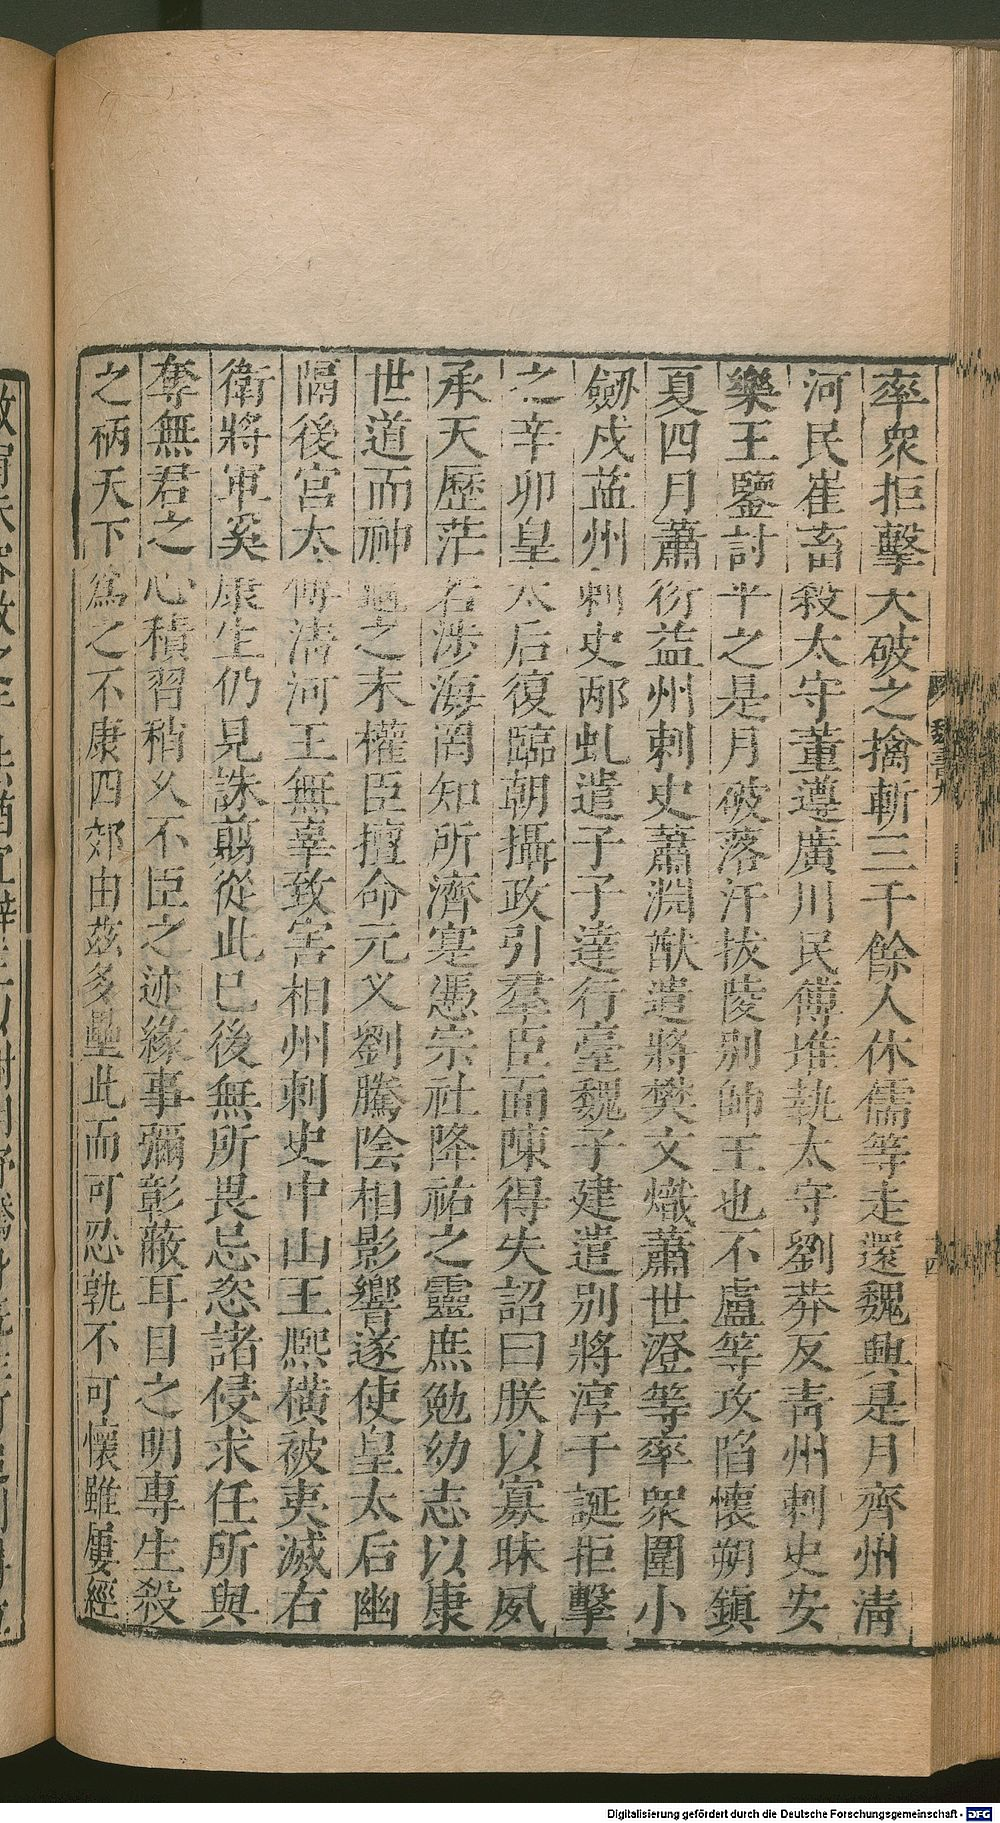 率衆拒擊大破之擒斬三千餘人休儒等走還魏興是月齊州清
河民崔畜殺太守董遵廣川民傅堆執太守劉莽反青州刺史安
樂王鑒討平之是月破落汗拔陵別帥王也不盧等攻陷懷朔鎮
夏四月蕭衍益州刺史蕭淵猷遣將樊文熾蕭世澄等率衆圍小
劒戍益州刺史邴虬遣子子達行臺魏子建遣別將淳于誕拒擊
之辛卯皇太后復臨朝攝政引羣臣面陳得失詔曰朕以寡昧夙
承天歷茫若涉海罔知所濟寔憑宗社降祐之靈庶勉幼志以康
世道而神龜之末權臣擅命元乂劉騰陰相影響遂使皇太后幽
隔後宮太傅清河王無辜致害相州刺史中山王熙橫被夷滅右
衛將軍奚康生仍見誅翦從此已後無所畏忌恣諸侵求任所與
奪無君之心積習稍久不臣之迹緣事彌彰蔽耳目之明專生殺
之柄天下為之不康四郊由茲多壘此而可忍孰不可懷雖屢經
魏書九
四
Digitalisierung gefördert durch die Deutsche Forschungsgemeinschaft - DFG